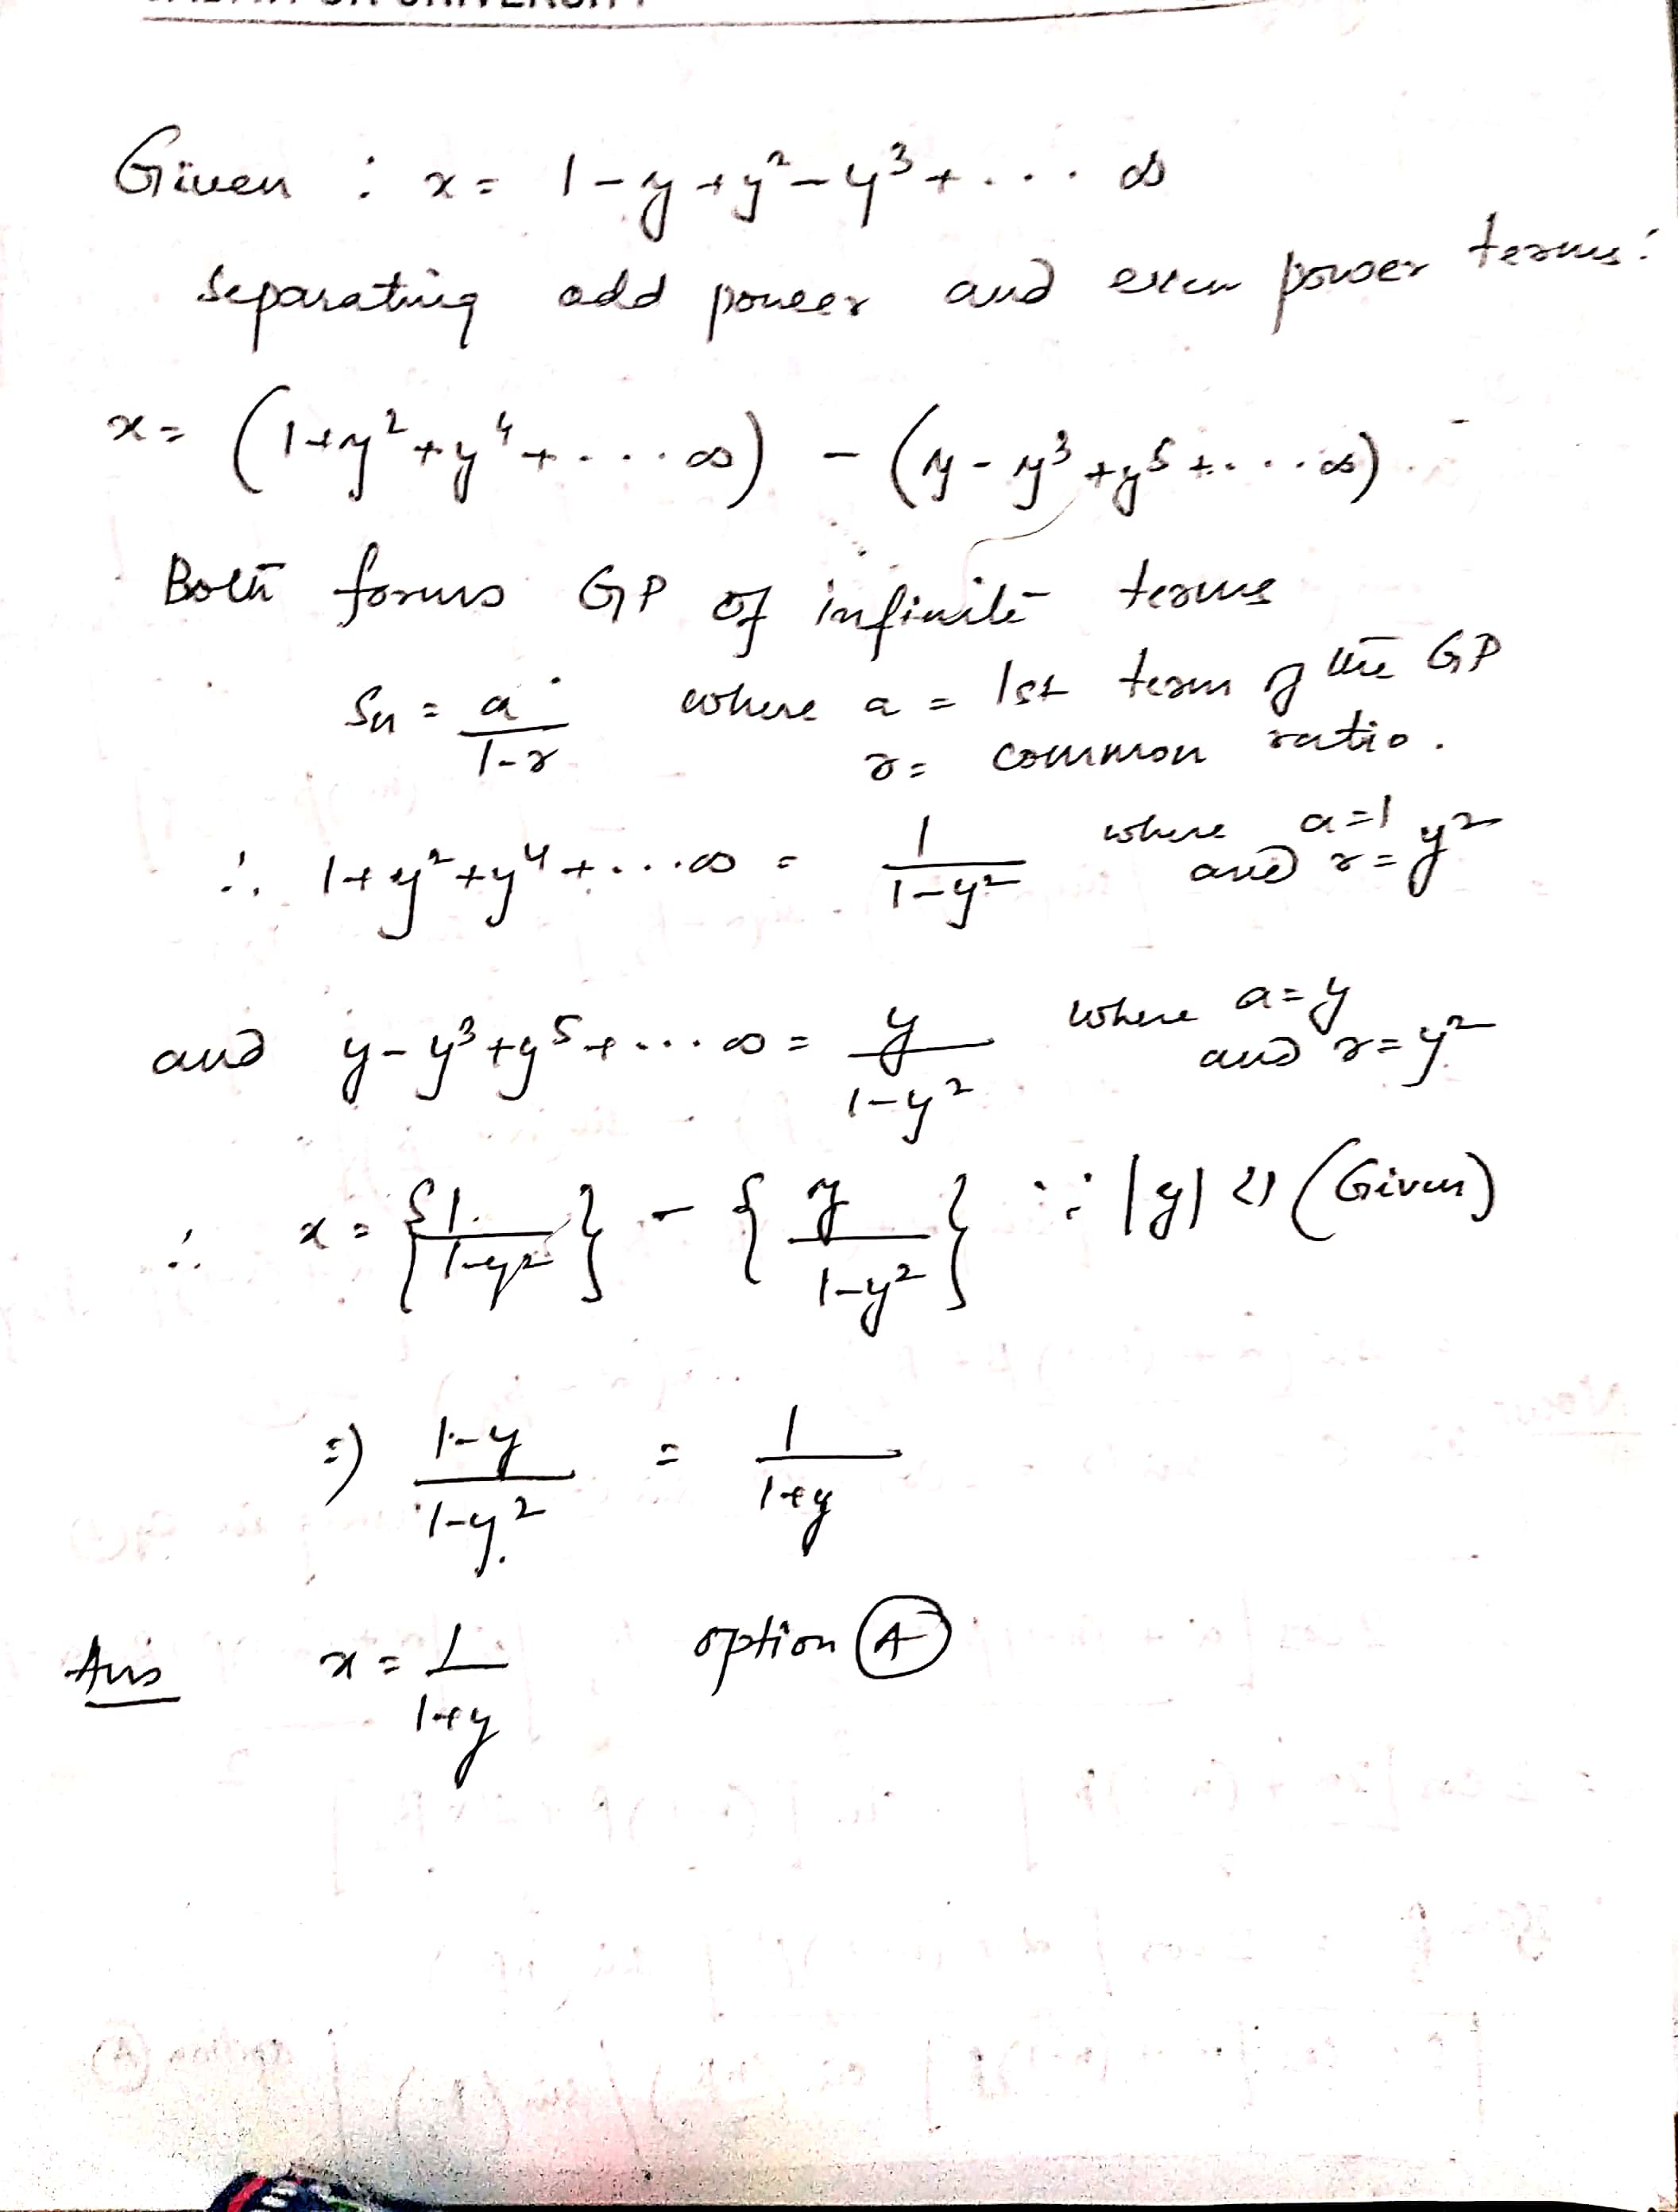 Given : x = 1 - y + y² - y³ + ... ∞
Separating odd power and even power terms:
x = (1 + y² + y⁴ + .... ∞) - (y - y³ + y⁵ + .... ∞)
Both forms GP of infinite terms
Sn = a / 1-r where a = 1st term of the GP
r = common ratio.
∴ 1 + y² + y⁴ + .... ∞ = 1 / 1-y² where a = 1 and r = y²
and y - y³ + y⁵ + .... ∞ = y / 1-y² where a = y and r = y²
∴ x = {1 / 1-y²} - {y / 1-y²} ∵ |y| < 1 (Given)
⇒ 1-y / 1-y² = 1 / 1+y
Ans x = 1 / 1+y option (A)